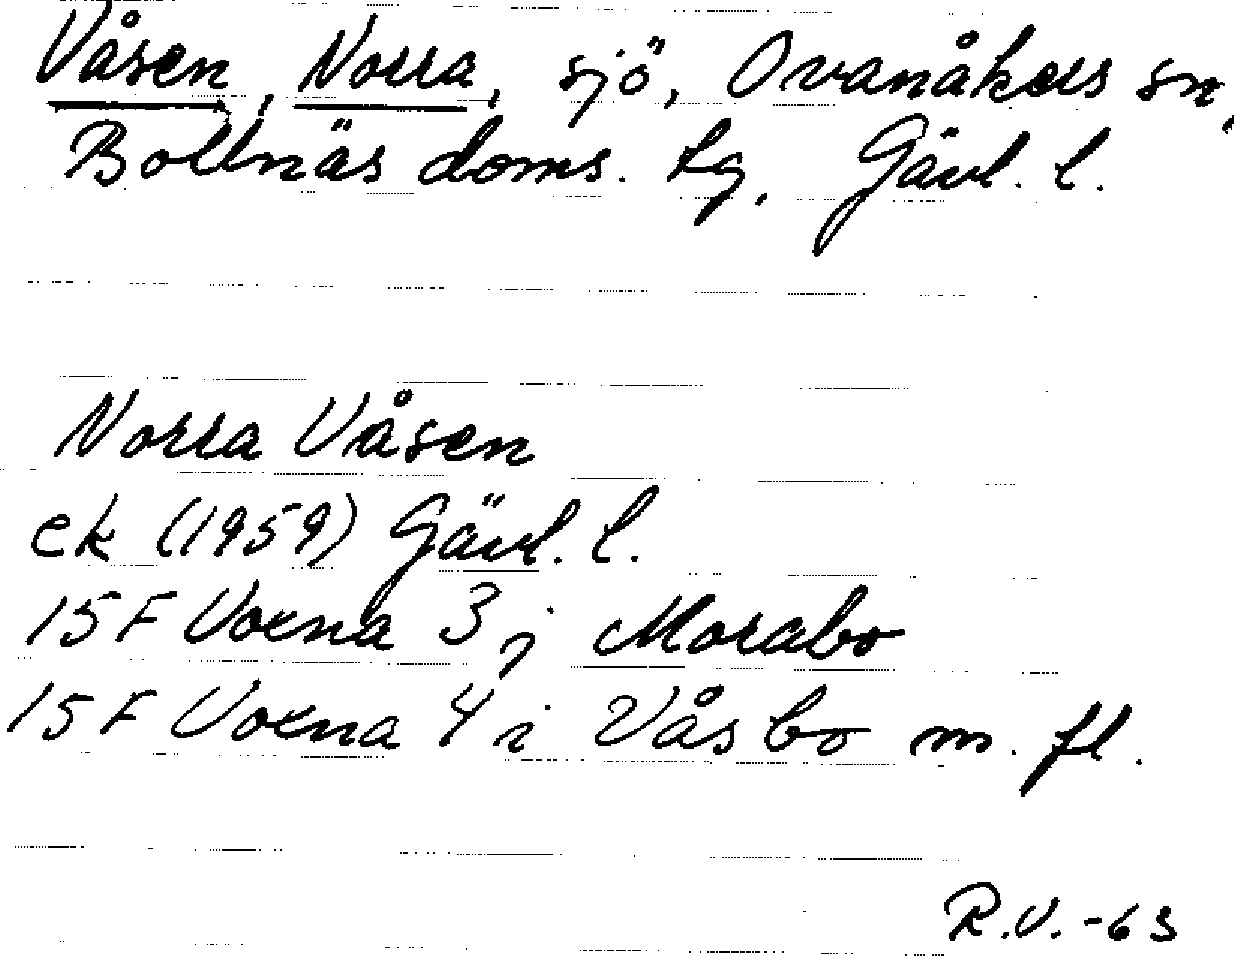 Våsen, Norra, sjö, Ovanåkers sn,
Bollnäs doms. tg, Gävl. l.
Norra Våsen
ek (1959) Gävl. l.
15 F Voxna 3 j Morabo
15 F Voxna 4 i Våsbo m. fl.
R.V. -63